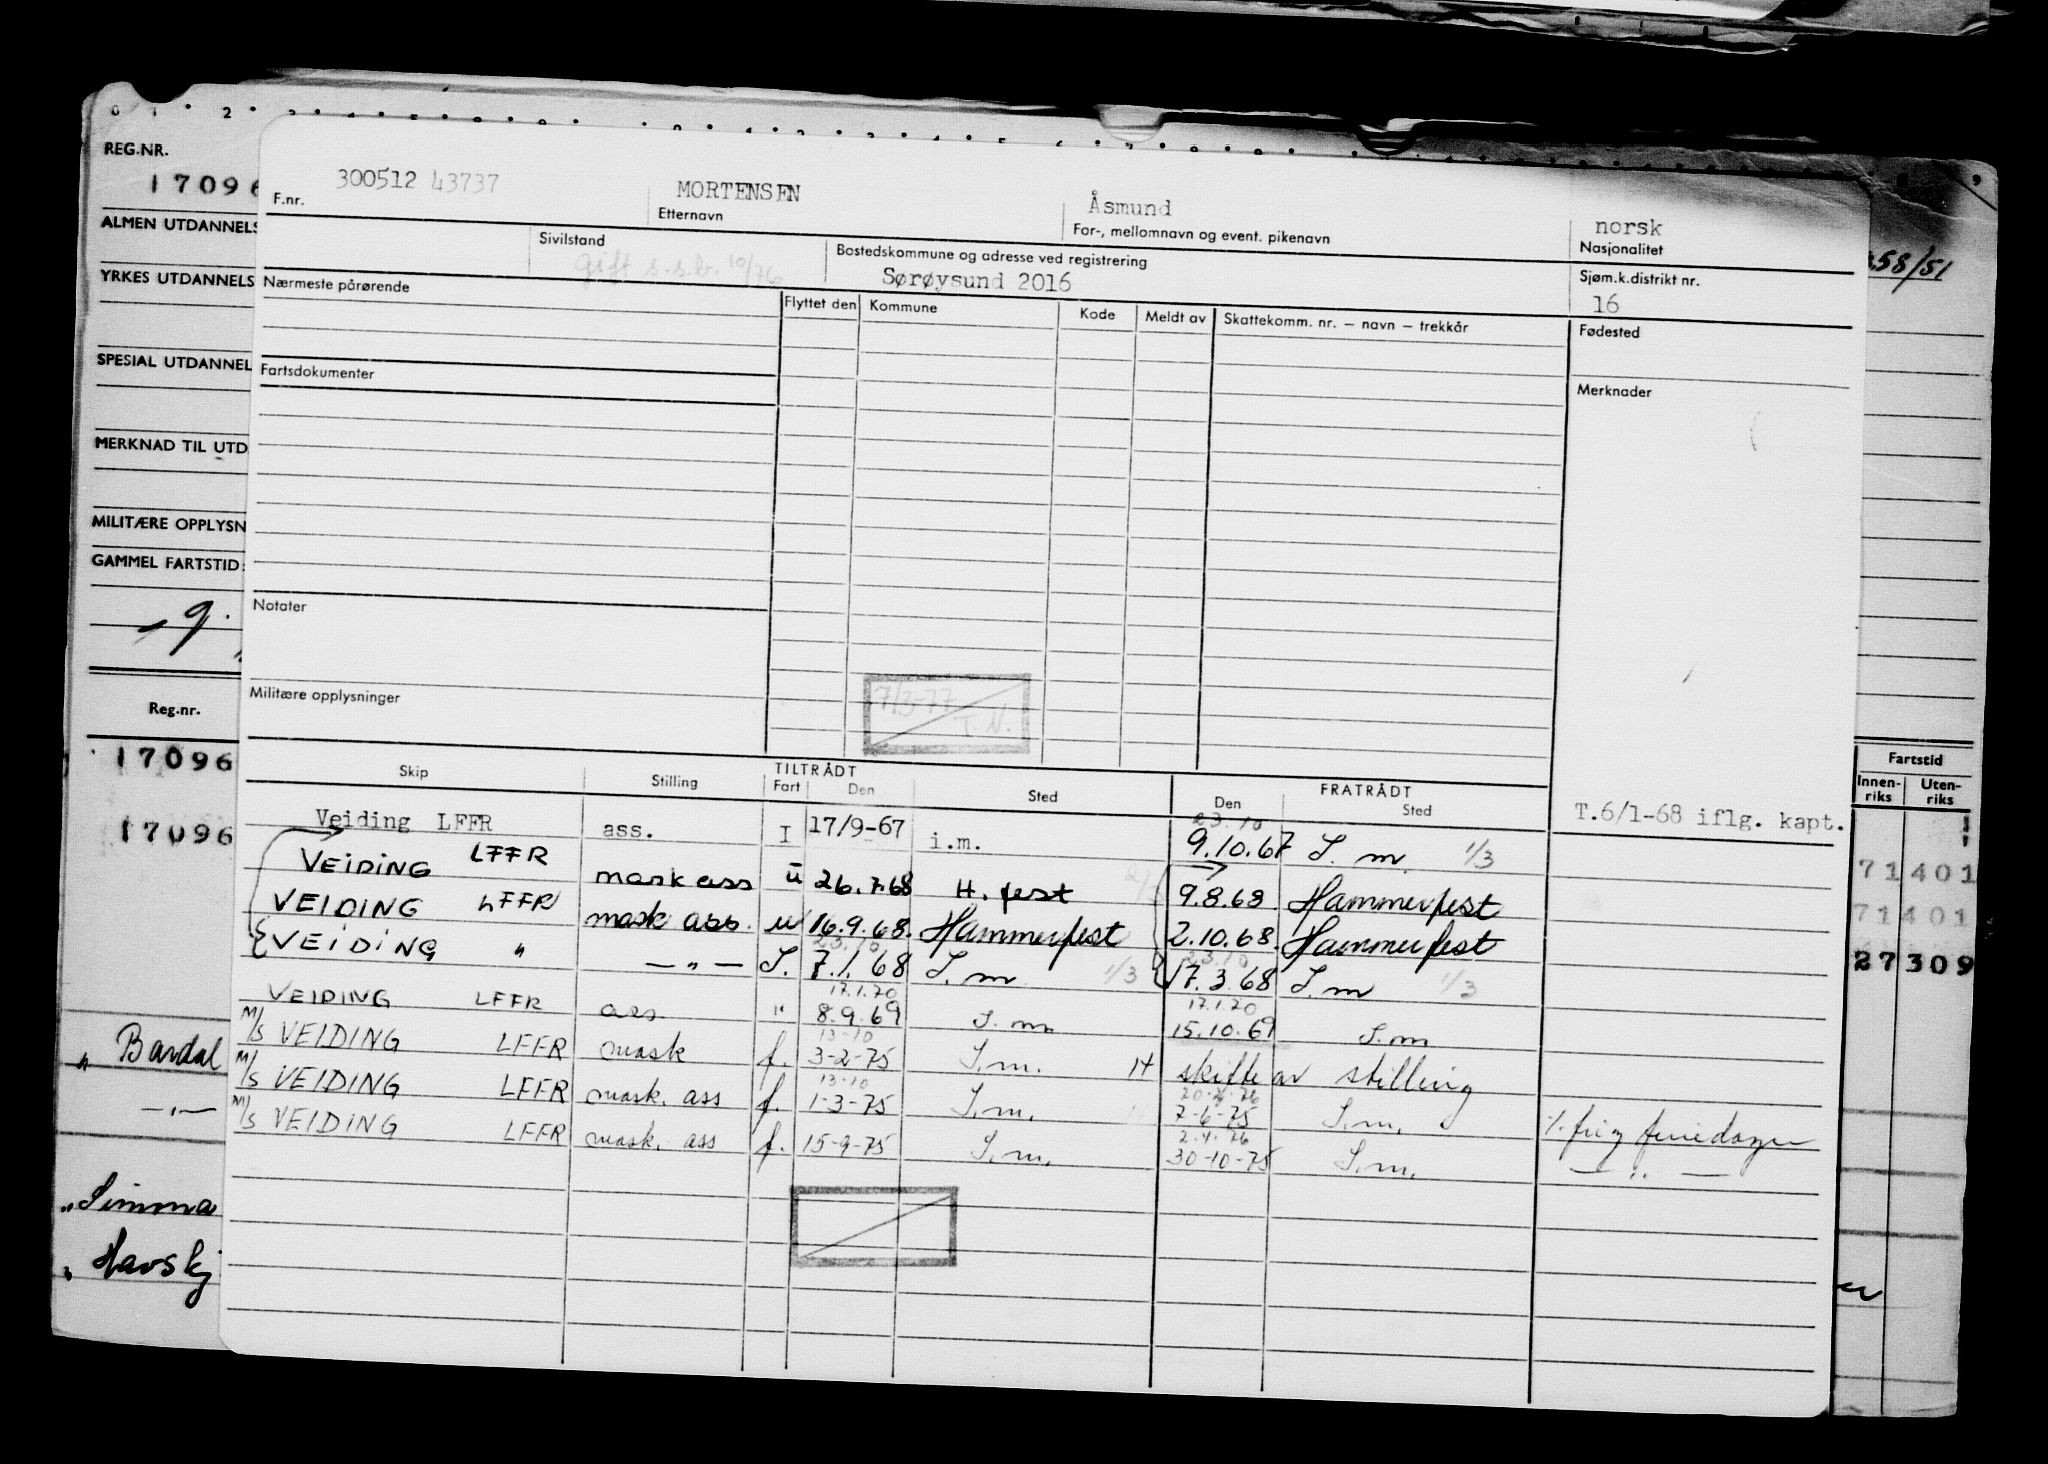 0 1 2 3 4 5
REG.NR.
17096
ALMEN UTDANNELS
YRKES UTDANNELS
SPESIAL UTDANNEL
MERKNAD TIL UTD
MILITÆRE OPPLYSN
GAMMEL FARTSTID:
Reg.nr.
17096
17096
" Bardal
— " —
" Simma
" Havskj
300512 43737 MORTENSEN Åsmund norsk
F.nr. Etternavn For-, mellomnavn og event. pikenavn Nasjonalitet
Sivilstand Bostedskommune og adresse ved registrering Sjøm.k.distrikt nr.
gift s.s.b. 10/76 Sørøysund 2016 16
Nærmeste pårørende Flyttet den Kommune Kode Meldt av Skattekomm. nr. – navn – trekkår Fødested
Fartsdokumenter Merknader
Notater
Militære opplysninger
7/3-77
T.N.
Skip Stilling TILTRÅDT FRATRÅDT
Fart Den Sted Den Sted
Veiding LFFR ass. I 17/9-67 i.m. 23.10 9.10.67 I.m. 1/3 T.6/1-68 iflg. kapt.
VEIDING LFFR mask ass u 26.7.68 H.fest 9.8.68 Hammerfest
VEIDING LFFR mask ass. u 16.9.68. Hammerfest 2.10.68. Hammerfest
VEIDING " — " — I. 23.10 7.1.68 I.m 1/3 23.10 17.3.68 I.m 1/3
VEIDING LFFR ass " 17.1.70 8.9.69 I.m 17.1.70 15.10.69 I.m
M/S VEIDING LFFR mask f. 13-10 3-2-75 I.m. H skifte av stilling
M/S VEIDING LFFR mask. ass f. 13.10 1-3-75 I.m. 7-6-75 I.m. %. frig feriedager
M/S VEIDING LFFR mask. ass f. 15-9-75 I.m. 2.4.76 30-10-75 I.m. — " —
58/51
Fartstid
Innen-riks Uten-riks
71401
71401
27309